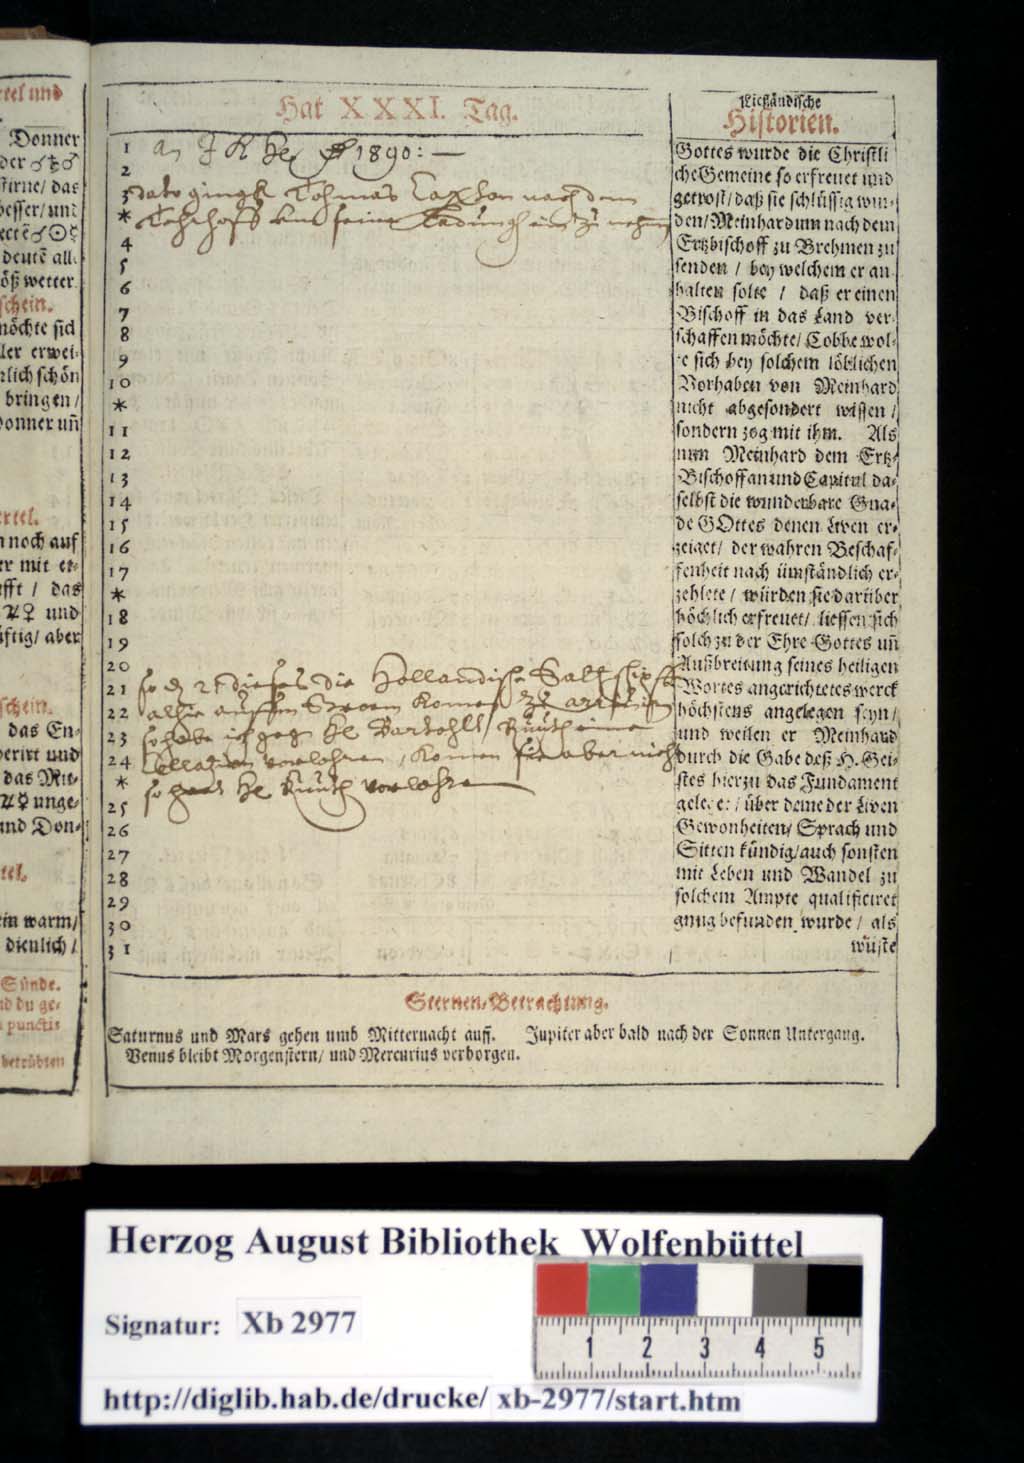 Hat XXXI. Tag.
1 1890: —
2
3 dato gingk Tohmas Caxton nach dem
*
4
5
6
7
8
9
10
*
11
12
13
14
15
16
17
*
18
19
20
21 dieses die Hollandische Salt
22 alhie auffm Stroem Komen
23 so habe ich
24 verlohren, Komen sie aber nicht
*
25 so verlohren
26
27
28
29
30
31
Liefländische
Historien.
Gottes wurde die Christli
che Gemeine so erfreuet und
getrost / daß sie schlüssig wur-
den / Meinhardum nach dem
Ertzbischoff zu Brehmen zu
senden / bey welchem er an
halten solte / daß er einen
Bischoff in das Land ver-
schaffen möchte / Tobbe wol-
te sich bey solchem löblichen
Vorhaben von Meinhard
nicht abgesondert wissen /
sondern zog mit ihm. Als
nun Meinhard dem Ertz-
Bischoff an und Capitul da-
selbst die wunderbare Gna-
de GOttes denen Liven er-
zeiget / der wahren Beschaf-
fenheit nach ümständlich er-
zehlete / wurden sie darüber
höchlich erfreuet / liessen sich
solch zu der Ehre Gottes uñ
Außbreitung seines heiligen
Wortes angerichtetes werck
höchstens angelegen seyn /
und weilen er Meinhard
durch die Gabe deß H. Gei-
stes hierzu das Fundament
geleget / über deme der Liven
Gewonheiten / Sprach und
Sitten kündig / auch sonsten
mit Leben und Wandel zu
solchem Ampte qualificiret
gnug befunden wurde / als
wüste
Sternen-Betrachtung.
Saturnus und Mars gehen umb Mitternacht auff. Jupiter aber bald nach der Sonnen Untergang.
Venus bleibt Morgenstern / und Mercurius verborgen.
rtel und
Donner
der ♂☿♂
stirne / das
besser / und
ectē ♂☉☿
deutē all.
öß wetter.
schein.
möchte sich
ler erwei-
rlich schön
bringen /
Donner uñ
ertel.
n noch auf
er mit et-
fft / das
♃♀ und
äftig / aber
schein.
das En-
perirt und
das Mit-
♃☿ unge-
und Don-
tel.
in warm /
dienlich /
Sünde.
nd du ge-
punctis
betrübten
Herzog August Bibliothek Wolfenbüttel
Signatur: Xb 2977
1 2 3 4 5
http://diglib.hab.de/drucke/ xb-2977/start.htm